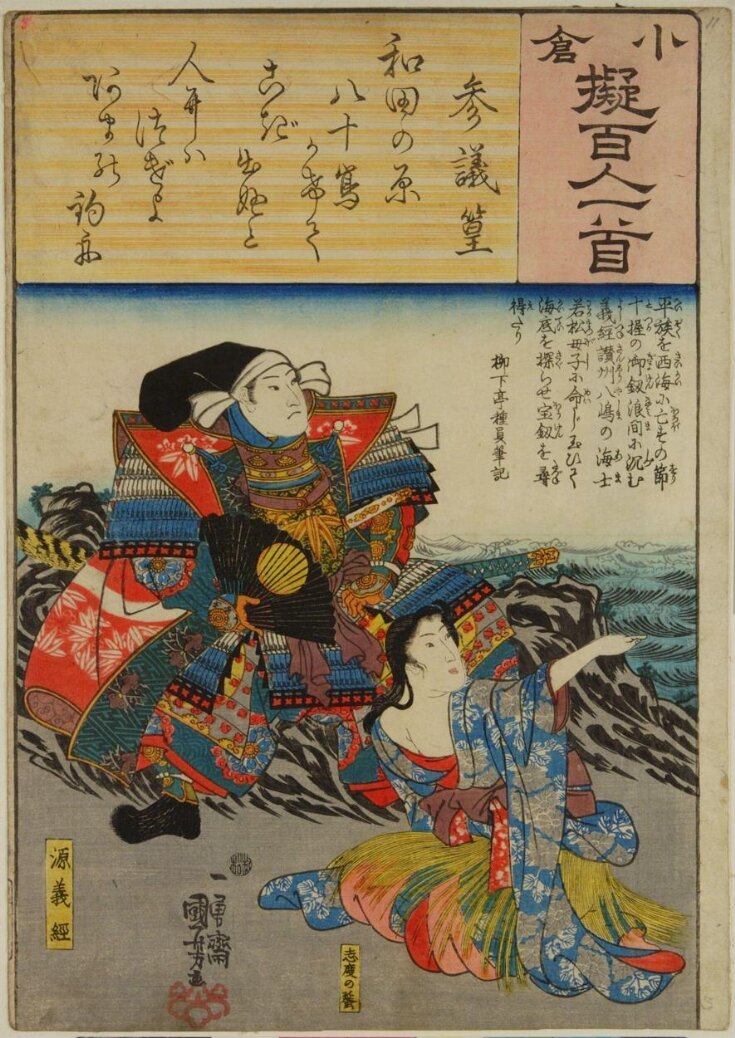 小倉
擬百人一首
参議篁
和田の原
八十嶌
かけて
こぎ
出ぬと
人にハ
つげよ
あまの
釣舟
平族を西海に亡すの節
十握の御釼浪間に沈む
義經讃州八嶋の海士
若松母子に命じ玉ひて
海底を探らせ宝釼を尋
得たり
柳下亭種員筆記
源義經
一勇齋
國芳画
志度の蜑